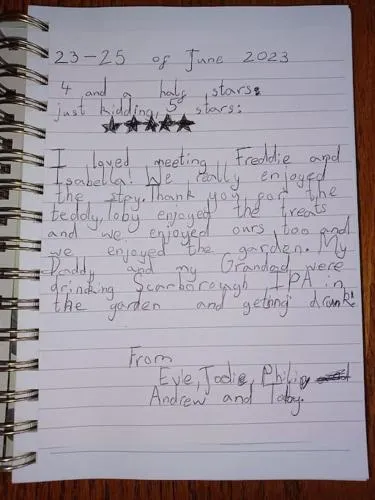 23-25 of June 2023
4 and a half stars:
just kidding, 5 stars:
★★★★★
I loved meeting Freddie and
Isabella! We really enjoyed
the stey. Thank you for the
teddy, Toby enjoyed the treats
and we enjoyed ours too and
we enjoyed the garden. My
Daddy and my Grandad were
drinking Scarborough IPA in
the garden and getting drunk!
From
Evie, Jodie, Philip
Andrew and Toby.